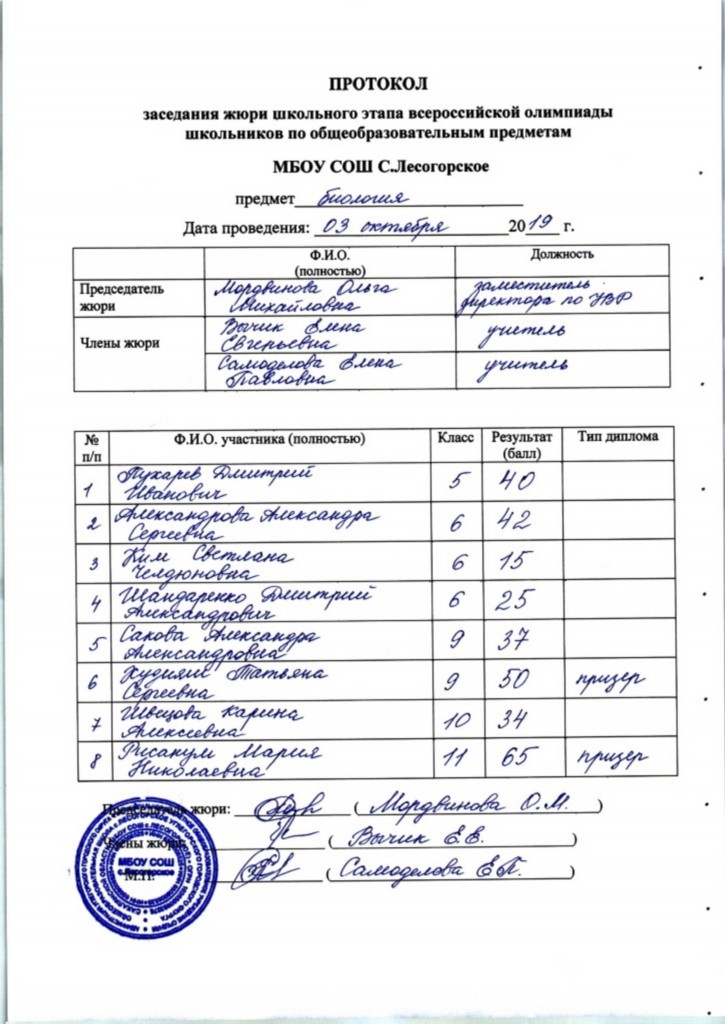 ПРОТОКОЛ
заседания жюри школьного этапа всероссийской олимпиады
школьников по общеобразовательным предметам
МБОУ СОШ С.Лесогорское
предмет биология
Дата проведения: 03 октября 2019 г.
Ф.И.О. Должность
(полностью)
Председатель жюри
Мордвинова Ольга
Михайловна
заместитель
директора по УВР
Члены жюри
Вычик Елена
Евгеньевна
учитель
Самоделова Елена
Павловна
учитель
№ п/п Ф.И.О. участника (полностью) Класс Результат (балл) Тип диплома
1 Пухарев Дмитрий
Иванович 5 40
2 Александрова Александра
Сергеевна 6 42
3 Ким Светлана
6 15
4 Шандаренко Дмитрий
Александрович 6 25
5 Сакова Александра
Александровна 9 37
6 Татьяна
Сергеевна 9 50 призер
7 Швецова Карина
Алексеевна 10 34
8 Мария
Николаевна 11 65 призер
Председатель жюри: ( Мордвинова О.М. )
Члены жюри: ( Вычик Е.Е. )
М.П. ( Самоделова Е.П. )
МБОУ СОШ
с.Лесогорское